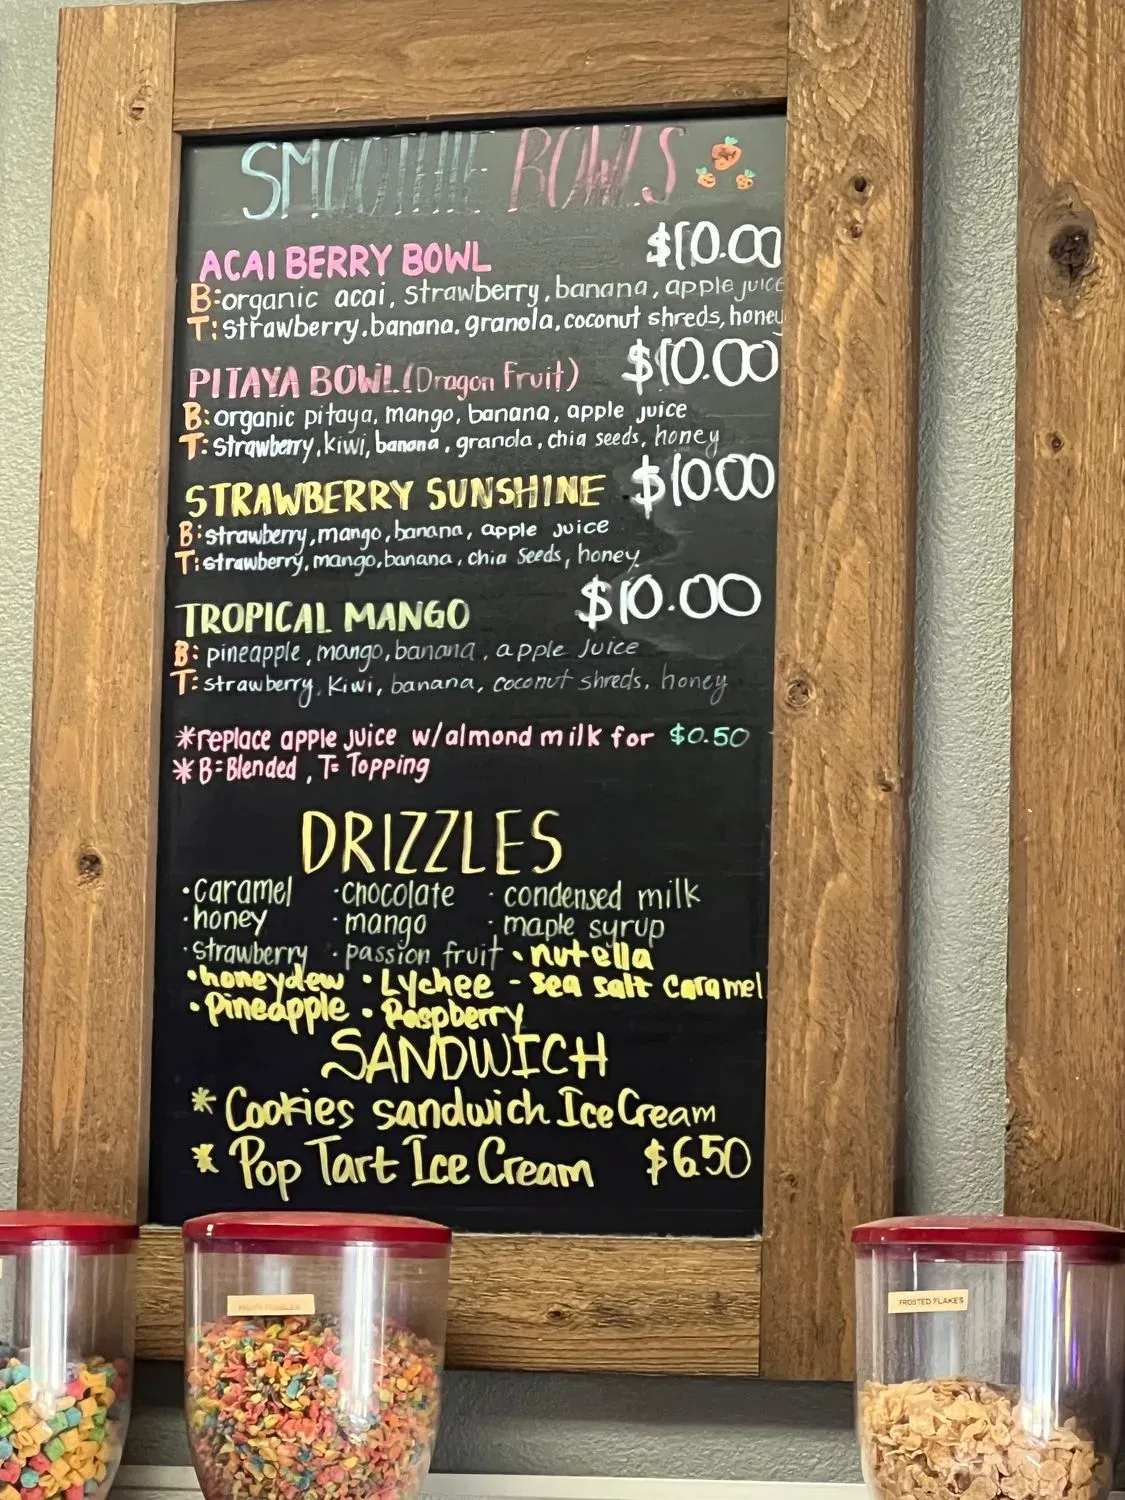 SMOOTHIE BOWLS
ACAI BERRY BOWL $10.00
B: organic acai, strawberry, banana, apple juice
T: strawberry, banana, granola, coconut shreds, honey
PITAYA BOWL (Dragon Fruit) $10.00
B: organic pitaya, mango, banana, apple juice
T: strawberry, kiwi, banana, granola, chia seeds, honey
STRAWBERRY SUNSHINE $10.00
B: strawberry, mango, banana, apple juice
T: strawberry, mango, banana, chia seeds, honey
TROPICAL MANGO $10.00
B: pineapple, mango, banana, apple juice
T: strawberry, kiwi, banana, coconut shreds, honey
*replace apple juice w/almond milk for $0.50
*B=Blended, T= Topping
DRIZZLES
·caramel ·chocolate ·condensed milk
·honey ·mango ·maple syrup
·strawberry ·passion fruit •nutella
•honeydew •Lychee -sea salt caramel
•Pineapple •Raspberry
SANDWICH
* Cookies sandwich Ice Cream
* Pop Tart Ice Cream $6.50
FRUITY PEBBLES
FROSTED FLAKES